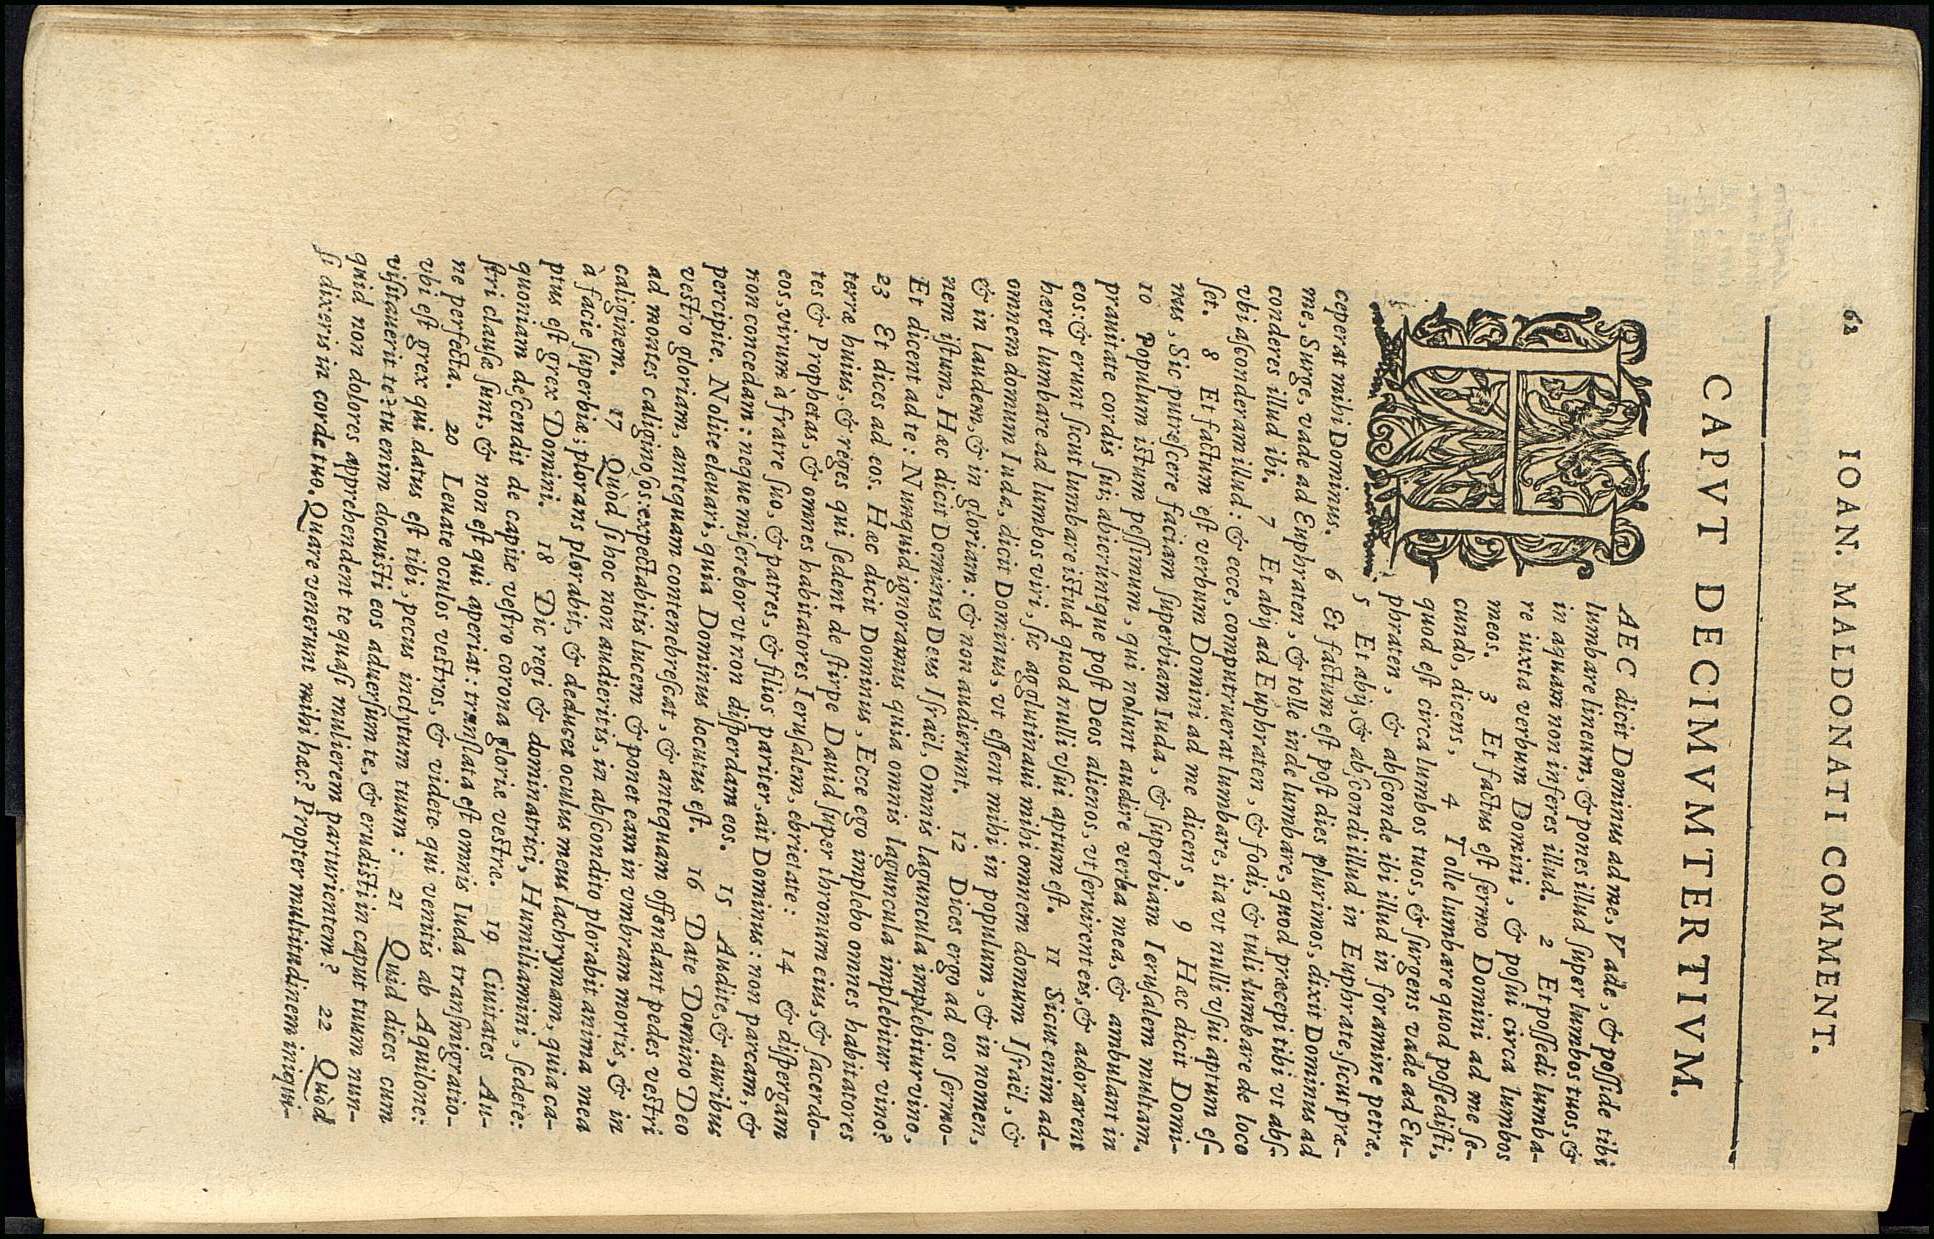 62 IOAN. MALDONATI COMMENT.
CAPVT DECIMVMTERTIVM.
HAEC dicit Dominus ad me, Vade, & posside tibi
lumbare lineum, & pones illud super lumbos tuos, &
in aquam non inferes illud. 2 Et possedi lumba-
re iuxta verbum Domini, & posui circa lumbos
meos. 3 Et factus est sermo Domini ad me se-
cundò, dicens, 4 Tolle lumbare quod possedisti,
quod est circa lumbos tuos, & surgens vade ad Eu-
phraten, & absconde ibi illud in foramine petræ.
5 Et abij, & abscondi illud in Euphrate, sicut præ-
ceperat mihi Dominus. 6 Et factum est post dies plurimos, dixit Dominus ad
me, Surge, vade ad Euphraten, & tolle inde lumbare, quod præcepi tibi vt abs-
conderes illud ibi. 7 Et abij ad Euphraten, & fodi, & tuli lumbare de loco
vbi absconderam illud: & ecce, computruerat lumbare, ita vt nulli vsui aptum es-
set. 8 Et factum est verbum Domini ad me dicens, 9 Hæc dicit Domi-
nus, Sic putrescere faciam superbiam Iuda, & superbiam Ierusalem multam.
10 Populum istum pessimum, qui nolunt audire verba mea, & ambulant in
prauitate cordis sui; abierúntque post Deos alienos, vt seruirent eis, & adorarent
eos: & erunt sicut lumbare istud quod nulli vsui aptum est. 11 Sicut enim ad-
hæret lumbare ad lumbos viri, sic agglutinaui mihi omnem domum Israël, &
omnem domum Iuda, dicit Dominus, vt essent mihi in populum, & in nomen,
& in laudem, & in gloriam: & non audierunt. 12 Dices ergo ad eos sermo-
nem istum, Hæc dicit Dominus Deus Israël, Omnis laguncula implebitur vino,
Et dicent ad te: Nunquid ignoramus quia omnis laguncula implebitur vino?
23 Et dices ad eos. Hæc dicit Dominus, Ecce ego implebo omnes habitatores
terræ huius, & reges qui sedent de stirpe Dauid super thronum eius, & sacerdo-
tes & Prophetas, & omnes habitatores Ierusalem, ebrietate: 14 & dispergam
eos, virum à fratre suo, & patres, & filios pariter, ait Dominus: non parcam, &
non concedam: neque miserebor vt non disperdam eos. 15 Audite, & auribus
percipite. Nolite eleuari, quia Dominus locutus est. 16 Date Domino Deo
vestro gloriam, antequam contenebrescat, & antequam offendant pedes vestri
ad montes caliginosos: expectabitis lucem & ponet eam in vmbram mortis, & in
caliginem. 17 Quòd si hoc non audieritis, in abscondito plorabit anima mea
à facie superbiæ; plorans plorabit, & deducet oculus meus lachrymam, quia ca-
ptus est grex Domini. 18 Dic regi & dominatrici, Humiliamini, sedete:
quoniam descendit de capite vestro corona gloriæ vestræ. 19 Ciuitates Au-
stri clausæ sunt, & non est qui aperiat: translata est omnis Iuda transmigratio-
ne perfecta. 20 Leuate oculos vestros, & videte qui venitis ab Aquilone:
vbi est grex qui datus est tibi, pecus inclytum tuum: 21 Quid dices cum
visitauerit te? tu enim docuisti eos aduersum te, & erudisti in caput tuum nun-
quid non dolores apprehendent te quasi mulierem parturientem? 22 Quòd
si dixeris in corde tuo. Quare venerunt mihi hæc? Propter multitudinem iniqui-